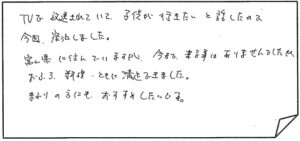 TVで放送されていて、子供が行きたいと話したので
今回、宿泊しました。
富山県に住んでいますが、今まで、来る事はありませんでしたが、
お料理・ともに満足できました。
まわりの方にも、おすすめしたいです。